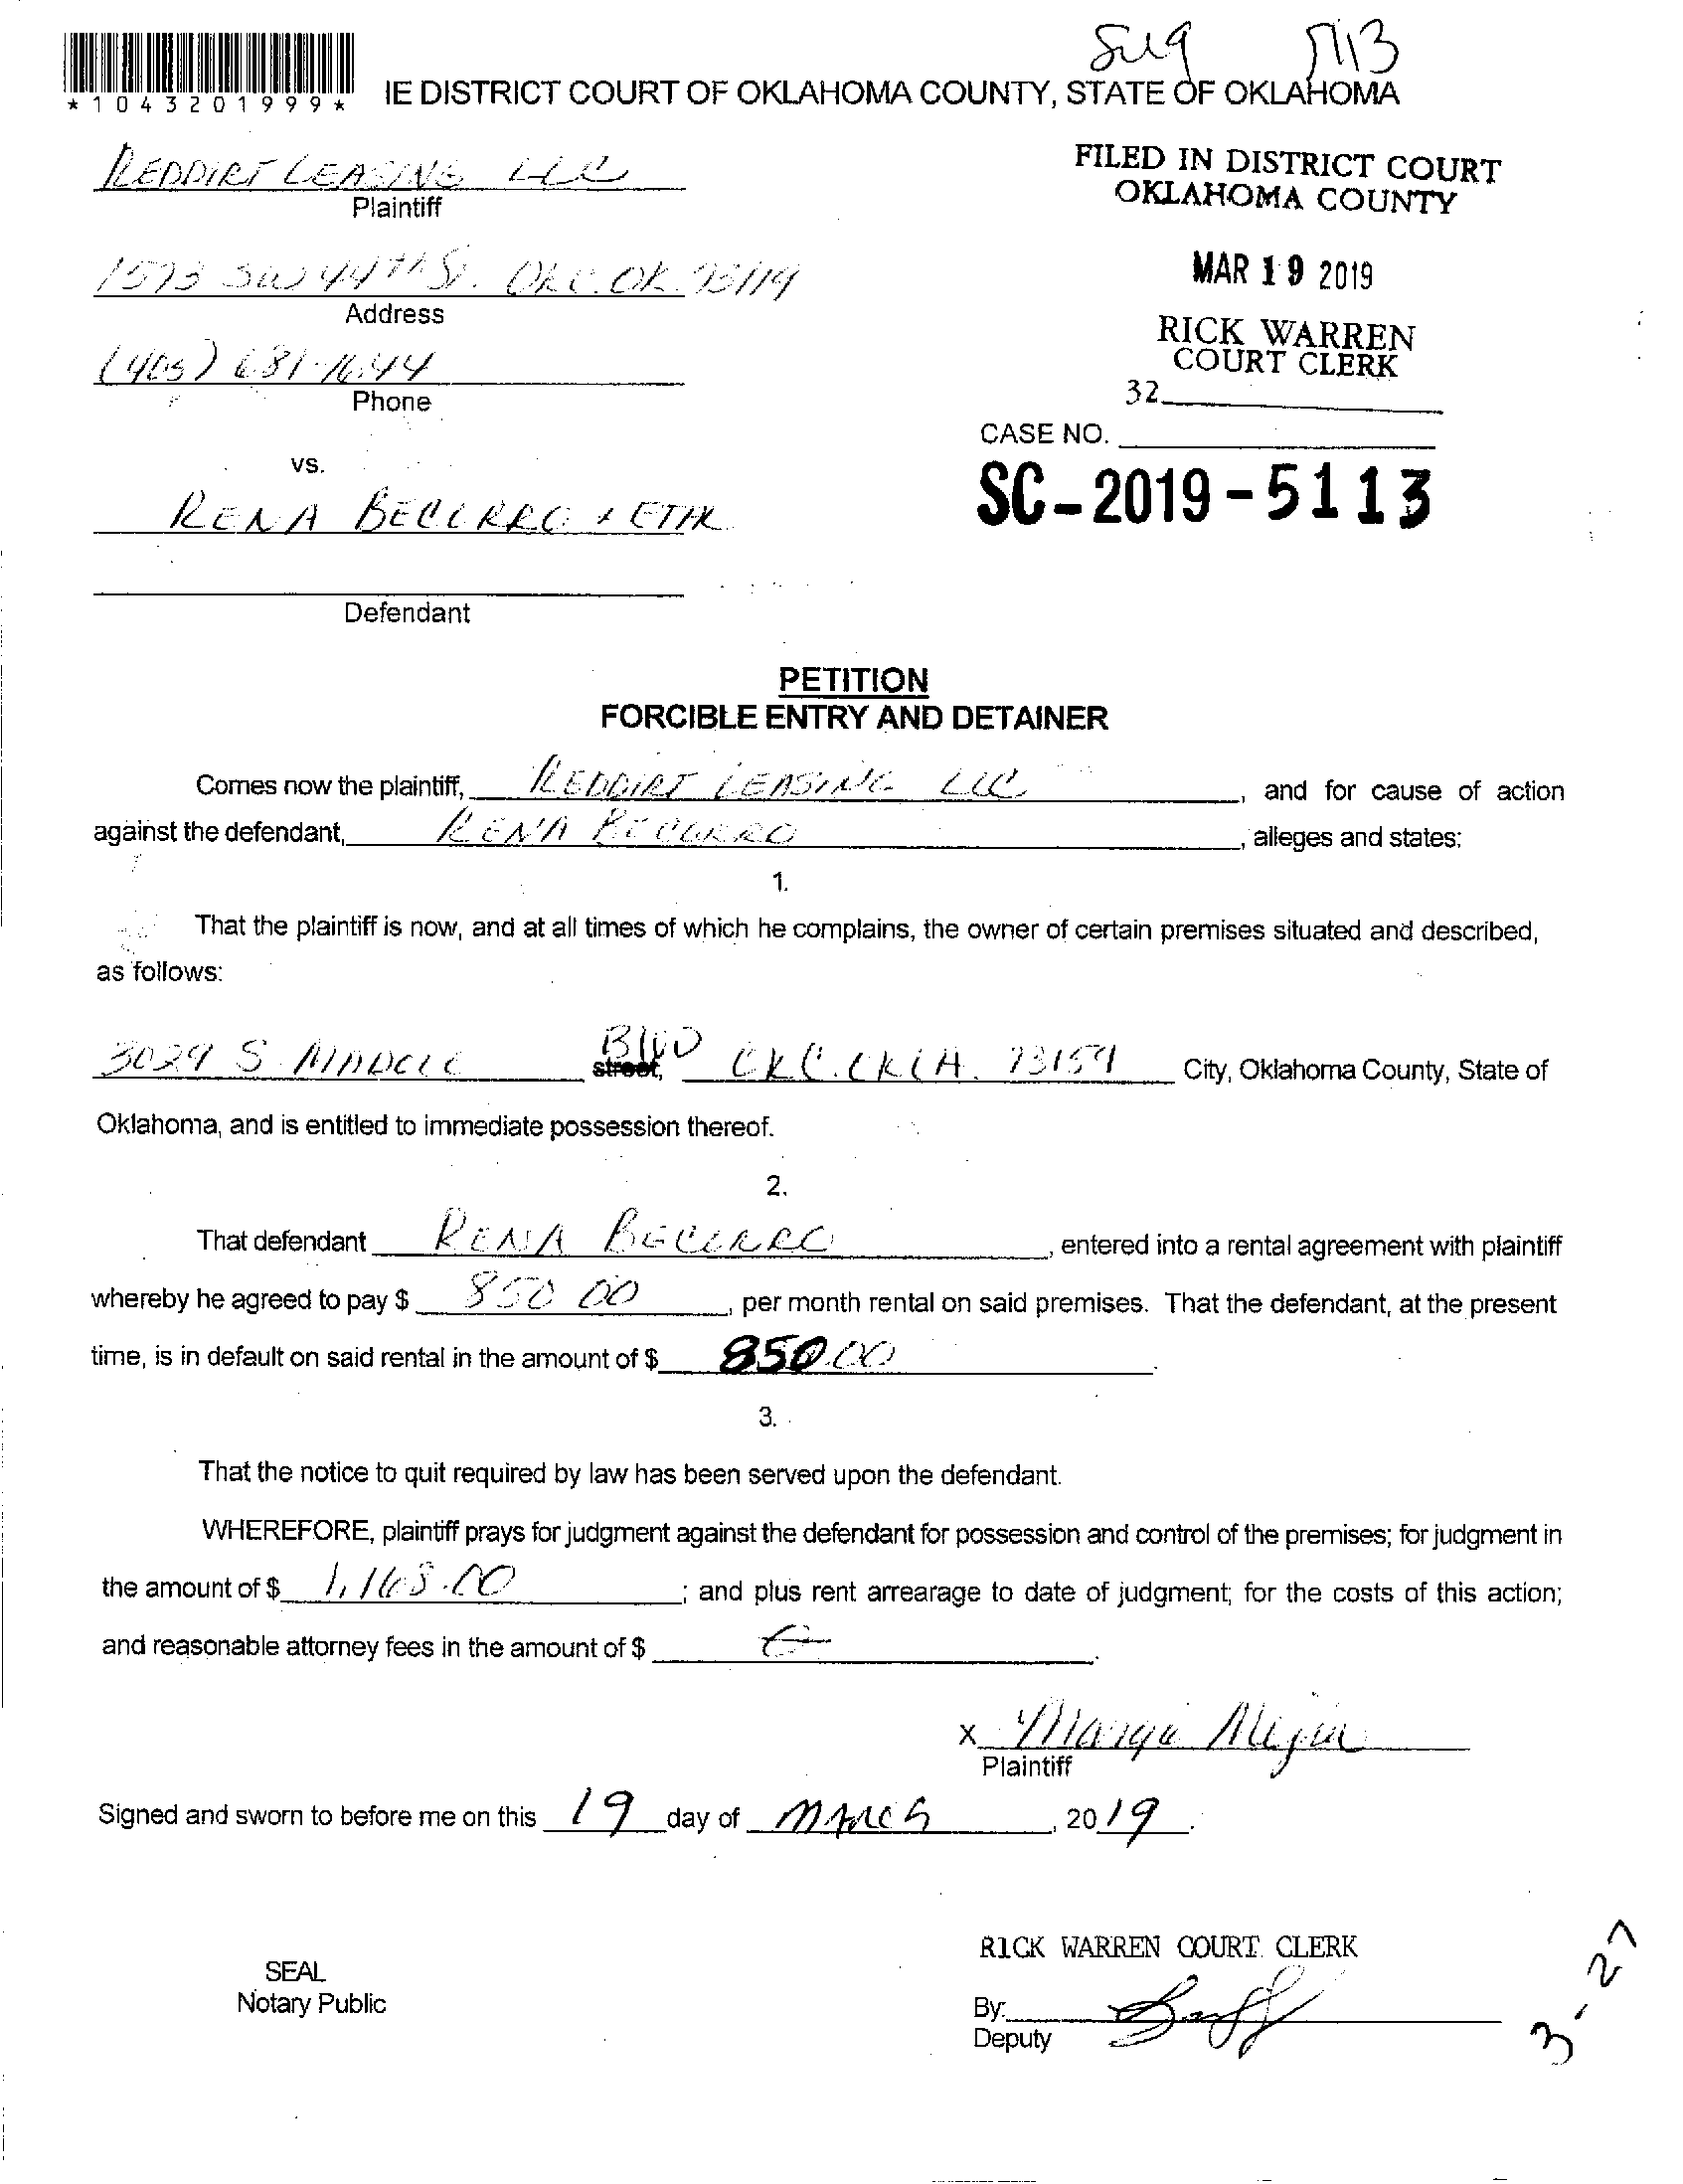 Sug 5113
*1043201999*
IE DISTRICT COURT OF OKLAHOMA COUNTY, STATE OF OKLAHOMA
REDDIRT LEASING LLC
Plaintiff
FILED IN DISTRICT COURT
OKLAHOMA COUNTY
1573 SW 44th St. OKC. OK. 73119
Address
MAR 19 2019
(405) 681-1644
Phone
RICK WARREN
COURT CLERK
32
CASE NO.
vs.
SC-2019-5113
RENA BECERRO + ETAL
Defendant
PETITION
FORCIBLE ENTRY AND DETAINER
Comes now the plaintiff, REDDIRT LEASING LLC, and for cause of action
against the defendant, RENA BECERRO, alleges and states:
1.
That the plaintiff is now, and at all times of which he complains, the owner of certain premises situated and described,
as follows:
3029 S. street, Blvd OKC. OKLA. 73159 City, Oklahoma County, State of
Oklahoma, and is entitled to immediate possession thereof.
2.
That defendant RENA BECERRO, entered into a rental agreement with plaintiff
whereby he agreed to pay $ 850 00, per month rental on said premises. That the defendant, at the present
time, is in default on said rental in the amount of $ 850.00.
3.
That the notice to quit required by law has been served upon the defendant.
WHEREFORE, plaintiff prays for judgment against the defendant for possession and control of the premises; for judgment in
the amount of $ 1,168.00; and plus rent arrearage to date of judgment; for the costs of this action;
and reasonable attorney fees in the amount of $
X
Plaintiff
Signed and sworn to before me on this 19 day of MARCH, 2019.
RICK WARREN COURT CLERK
SEAL
Notary Public
By:
Deputy
3-27